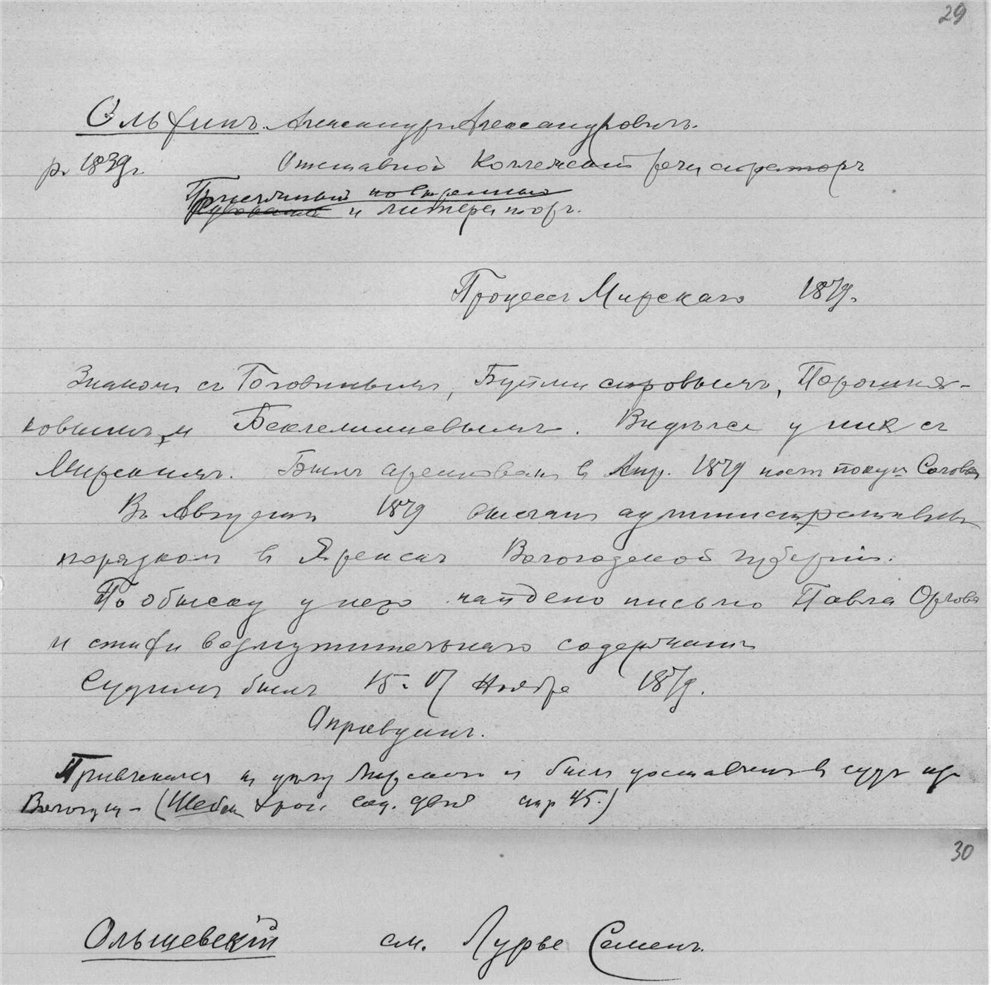 29
Ольхинъ. Александръ Александровичъ.
р. 1839 г. Отставной Коллежскій регистраторъ
Присяжный повѣренный
и литераторъ.
Процессъ Мирскаго 1879.
Знакомъ съ Головинымъ, Бурмистровымъ,
ковымъ и Беклемишевымъ. Видѣлся у нихъ съ
Мирскимъ. Былъ арестованъ въ Апр. 1879 послѣ покуш. Соловьев
Въ Августѣ 1879 высланъ административн
порядкомъ въ Яренскъ Вологодской губерніи.
По обыску у него найдено письмо Павла Орлова
и стихи возмутительнаго содержанія
Судимъ былъ 15-17 Ноября 1879.
Оправданъ.
Привлекался къ дѣлу Мирскаго и былъ доставленъ въ судъ из
Вологды – (Шебек Хрон. соц. движ стр 45.)
30
Ольшевскій см. Лурье Семенъ.